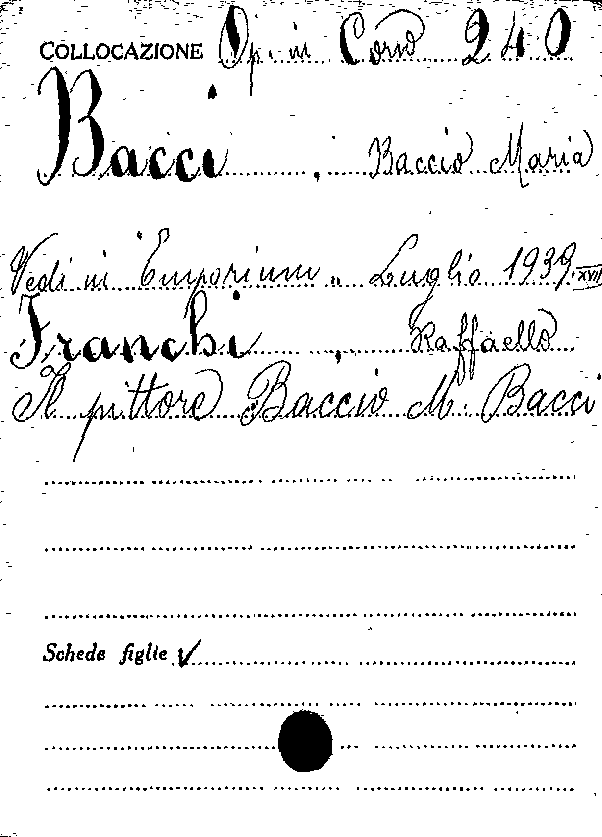 COLLOCAZIONE Op. in Corso 240
Bacci, Baccio Maria
Vedi in "Emporium" Luglio 1939.XVII
Franchi, Raffaello
Il pittore Baccio M. Bacci
Schede figlie √